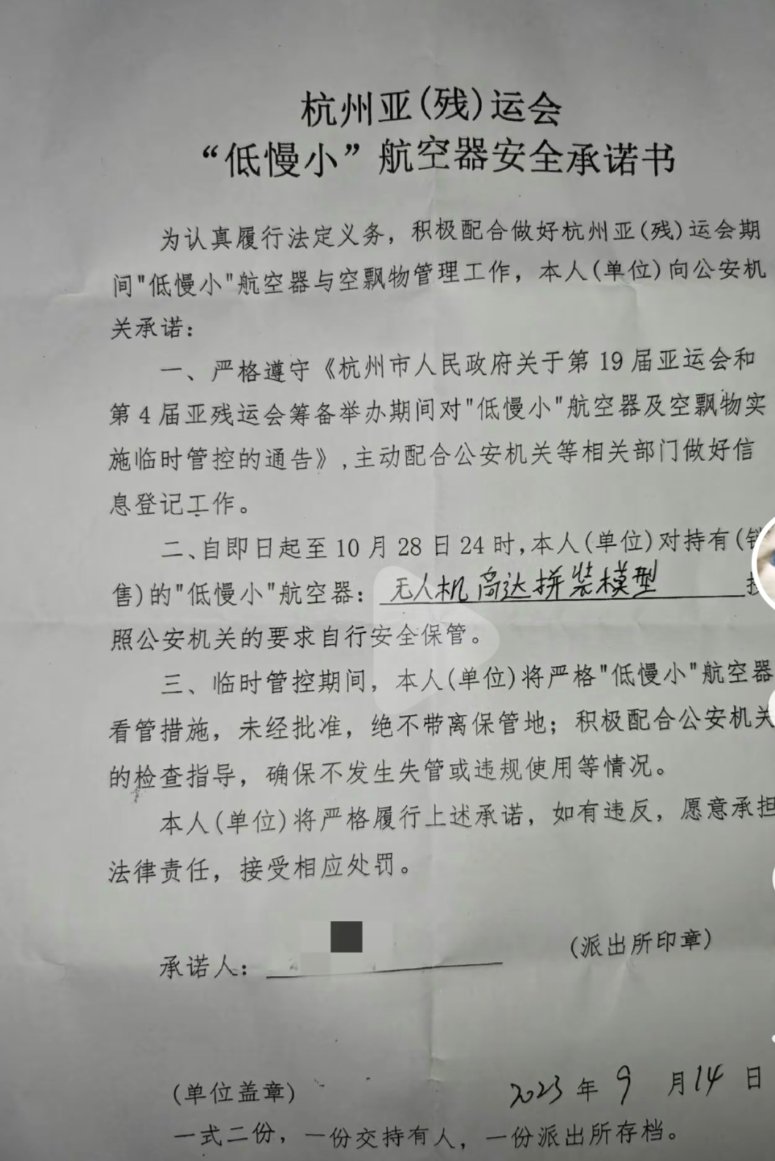 杭州亚(残)运会
“低慢小”航空器安全承诺书
为认真履行法定义务，积极配合做好杭州亚(残)运会期
间"低慢小"航空器与空飘物管理工作，本人(单位)向公安机
关承诺：
一、严格遵守《杭州市人民政府关于第 19 届亚运会和
第 4 届亚残运会筹备举办期间对"低慢小"航空器及空飘物实
施临时管控的通告》,主动配合公安机关等相关部门做好信
息登记工作。
二、自即日起至 10 月 28 日 24 时,本人(单位)对持有(销
售)的"低慢小"航空器：无人机 高达拼装模型 按
照公安机关的要求自行安全保管。
三、临时管控期间，本人(单位)将严格"低慢小"航空器
看管措施，未经批准，绝不带离保管地；积极配合公安机关
的检查指导，确保不发生失管或违规使用等情况。
本人(单位)将严格履行上述承诺，如有违反，愿意承担
法律责任，接受相应处罚。
承诺人： (派出所印章)
(单位盖章) 2023 年 9 月 14 日
一式二份，一份交持有人，一份派出所存档。